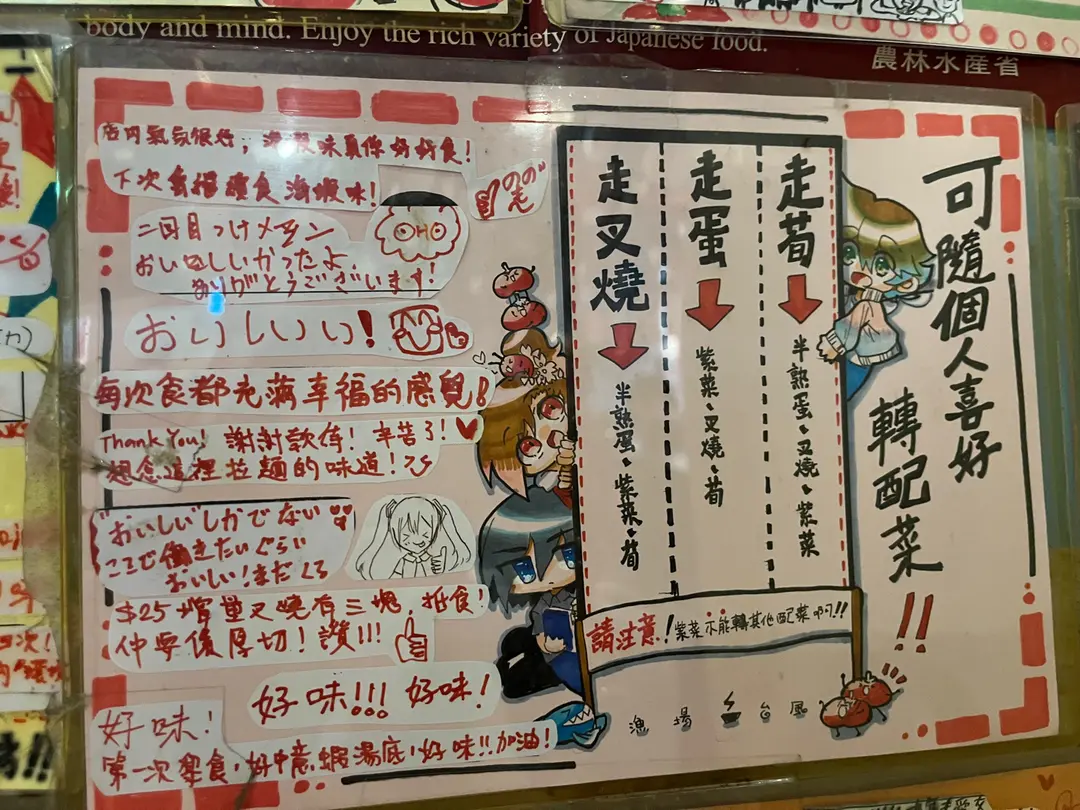 body and mind. Enjoy the rich variety of Japanese food.
農林水産省
可隨個人喜好
轉配菜!!
走荀
半熟蛋、叉燒、紫菜
走蛋
紫菜、叉燒、荀
走叉燒
半熟蛋、紫菜、荀
請注意! 紫菜不能轉其他配菜啊!!
漁場 台風
店内氣氛很好;湯 味真係好好食!
下次會 食海蝦味!
二回目つけメン
おいしかったよ
ありがとうございます!
おいしいい!
每次食都充滿幸福的感覺!
Thank You! 謝謝款待! 辛苦了!
想念這裡拉麵的味道!
"おいしい"しかでない
ここで働きたいぐらい
おいしい!まだくる
$25 增量叉燒有三塊, 抵食!
仲要係厚切! 讚!!!
好味!!! 好味!
好味!
第一次黎食,好中意蝦湯底!好味!!加油!